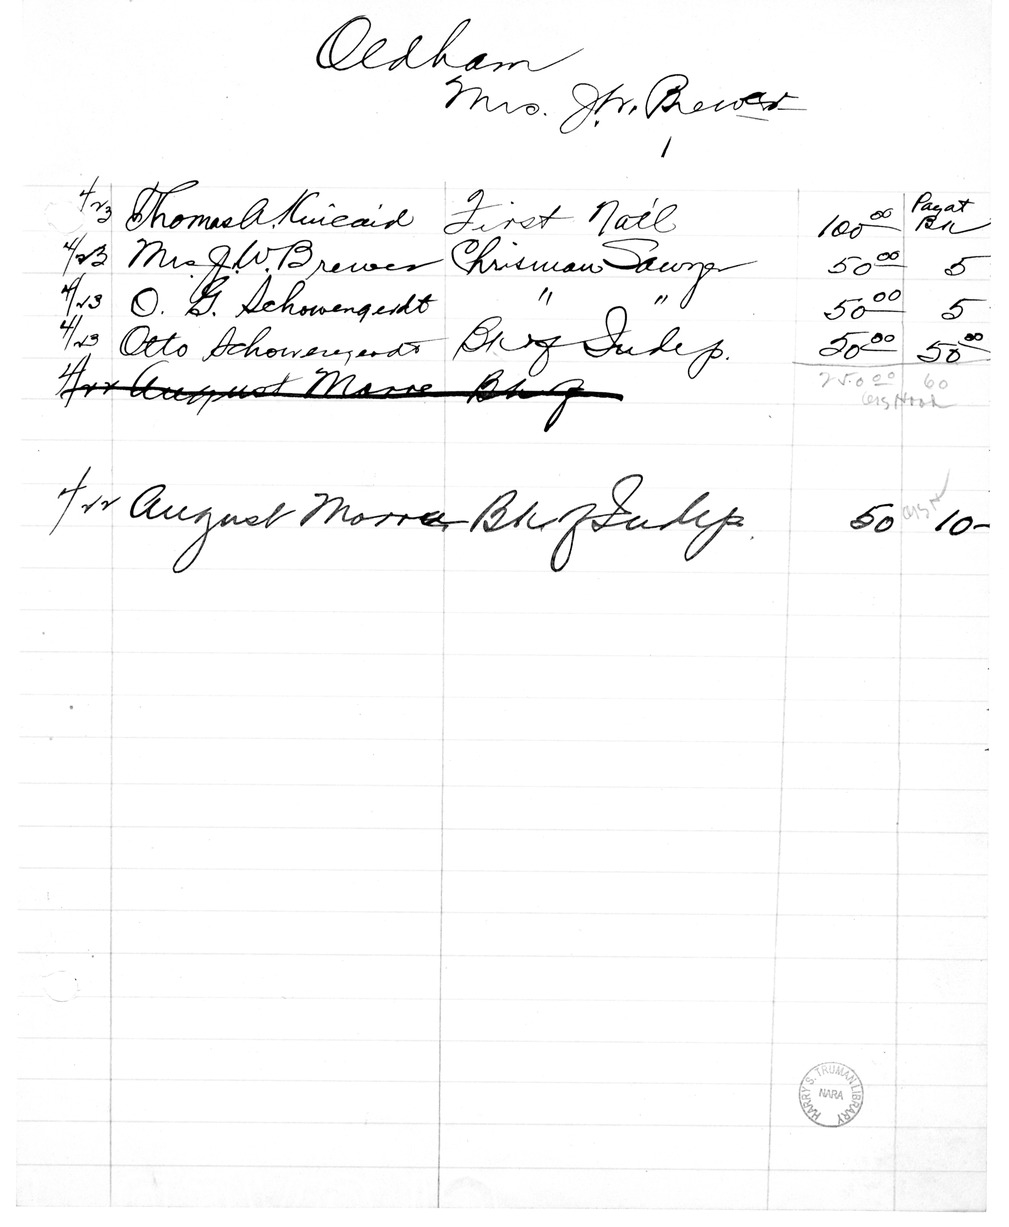 Oldham
Mrs. J.W. Brewer
1
4/23 Thomas A. Kincaid First Nat'l 100 00 Pay at Bk
4/23 Mrs J.W. Brewer Chrisman Sawyer 50 00 5
4/23 O. G. Schowengerdt " " 50 00 5
4/23 Otto Schowengerdt Bk of Indep. 50 00 50 00
250 00 60
4/22 August Morre Bk of
4/22 August Morre Bk of Indep. 50 10-
HARRY S. TRUMAN LIBRARY
NARA